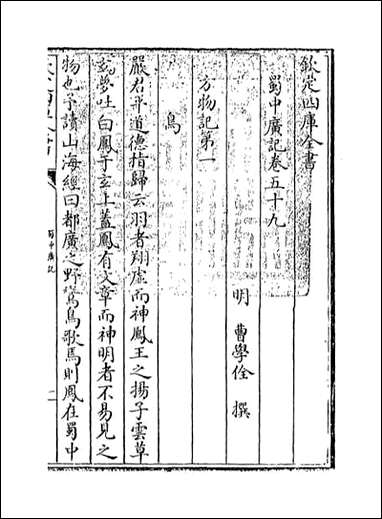 欽定四庫全書
蜀中廣記卷五十九
明 曹學佺 撰
方物記第一
鳥
嚴君平道德指歸云羽者翔虛而神鳳王之揚子雲草
玄夢吐白鳳于玄上蓋鳳有文章而神明者不易見之
物也予讀山海經曰都廣之野鸞鳥歌焉則鳳在蜀中
蜀中廣記